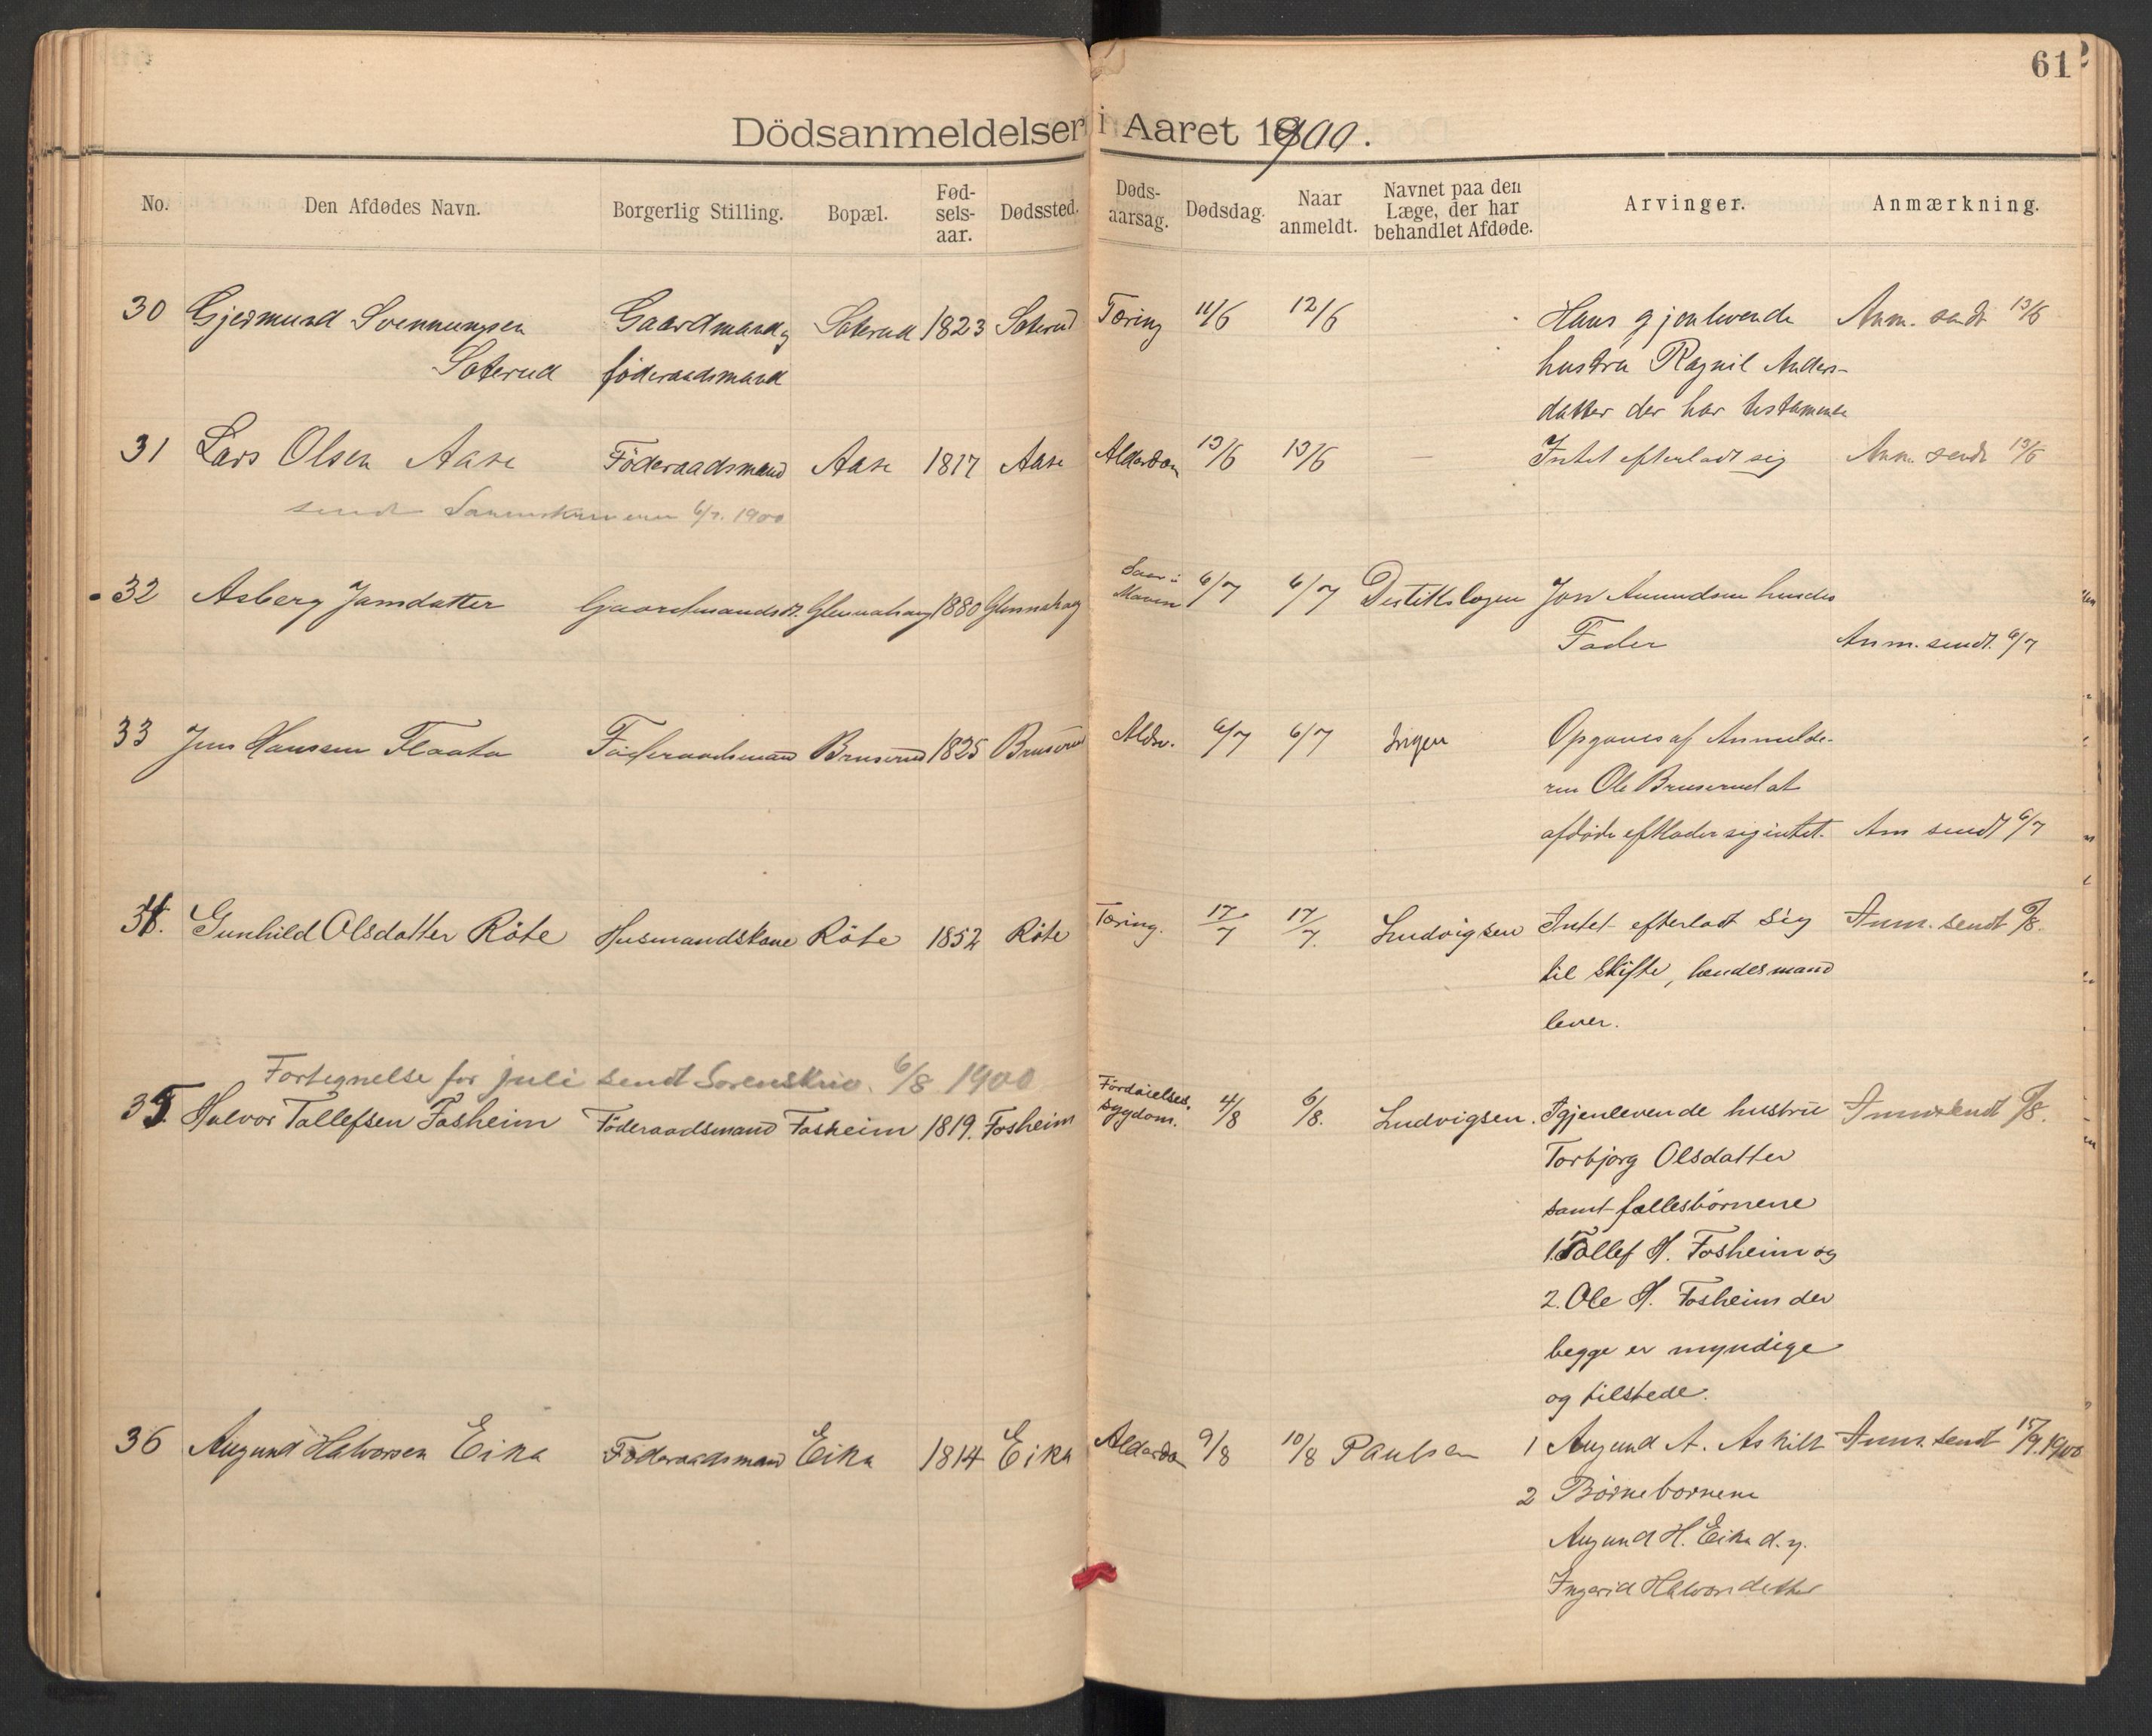 61
Dödsanmeldelser i Aaret 1900.
No. Den Afdødes Navn. Borgerlig Stilling. Bopæl. Fød-sels-aar. Dødssted. Døds-aarsag. Dødsdag. Naar anmeldt. Navnet paa den Læge, der har behandlet Afdøde. Arvinger. Anmærkning.
30 Gjermund Svennungsen Gaardmand og Soterud 1823 Soterud Tæring 11/6 12/6 Hans gjenlevende Anm. sendt 13/6
Soterud føderaadsmand hustru Ragnil Anders-
datter der har testamente
31 Lars Olsen Aase Föderaadsmand Aase 1817 Aase Alderdom 13/6 13/6 — Intet efterladt sig Anm. sendt 13/6
sendt Sorenskriveren 6/7. 1900
32 Asberg Jonsdatter Gaardmandsdt. 1880 Saar i Maven 6/7 6/7 Jon Amundsen hendes
Fader Anm. sendt 6/7
33 Jens Hansen Flaata Föderaadsmand Bruserud 1825 Bruserud Aldr. 6/7 6/7 Ingen Opgaves af Anmelde-
ren Ole Bruserud at
afdøde efterlader sig intet. Anm sendt 6/7
34. Gunhild Olsdatter Röte Husmandskone Röte 1852 Röte Tæring. 17/7 17/7. Ludvigsen Intet efterladt sig Anm. sendt 6/8.
til skifte, hendes mand
lever.
Fortegnelse for juli sendt Sorenskriv. 6/8 1900
35. Halvor Tollefsen Fosheim Föderaadsmand Fosheim 1819. Fosheim Fordöielses-sygdom. 4/8 6/8. Ludvigsen. Igjenlevende hustru Anm. sendt 6/8.
Torbjørg Olsdatter
samt fællesbørnene
1. Tollef H. Fosheim og
2. Ole H. Fosheim der
begge er myndige
og tilstede.
36 Augund Halvorsen Eika Föderaadsmand Eika 1814 Eika Alderdom 9/8 10/8 Paulsen 1 Augund A. Askilt Anm. sendt 15/9 1900
2 Børnebørnene
Augund H. Eika d. y.
Ingerid Halvorsdatter